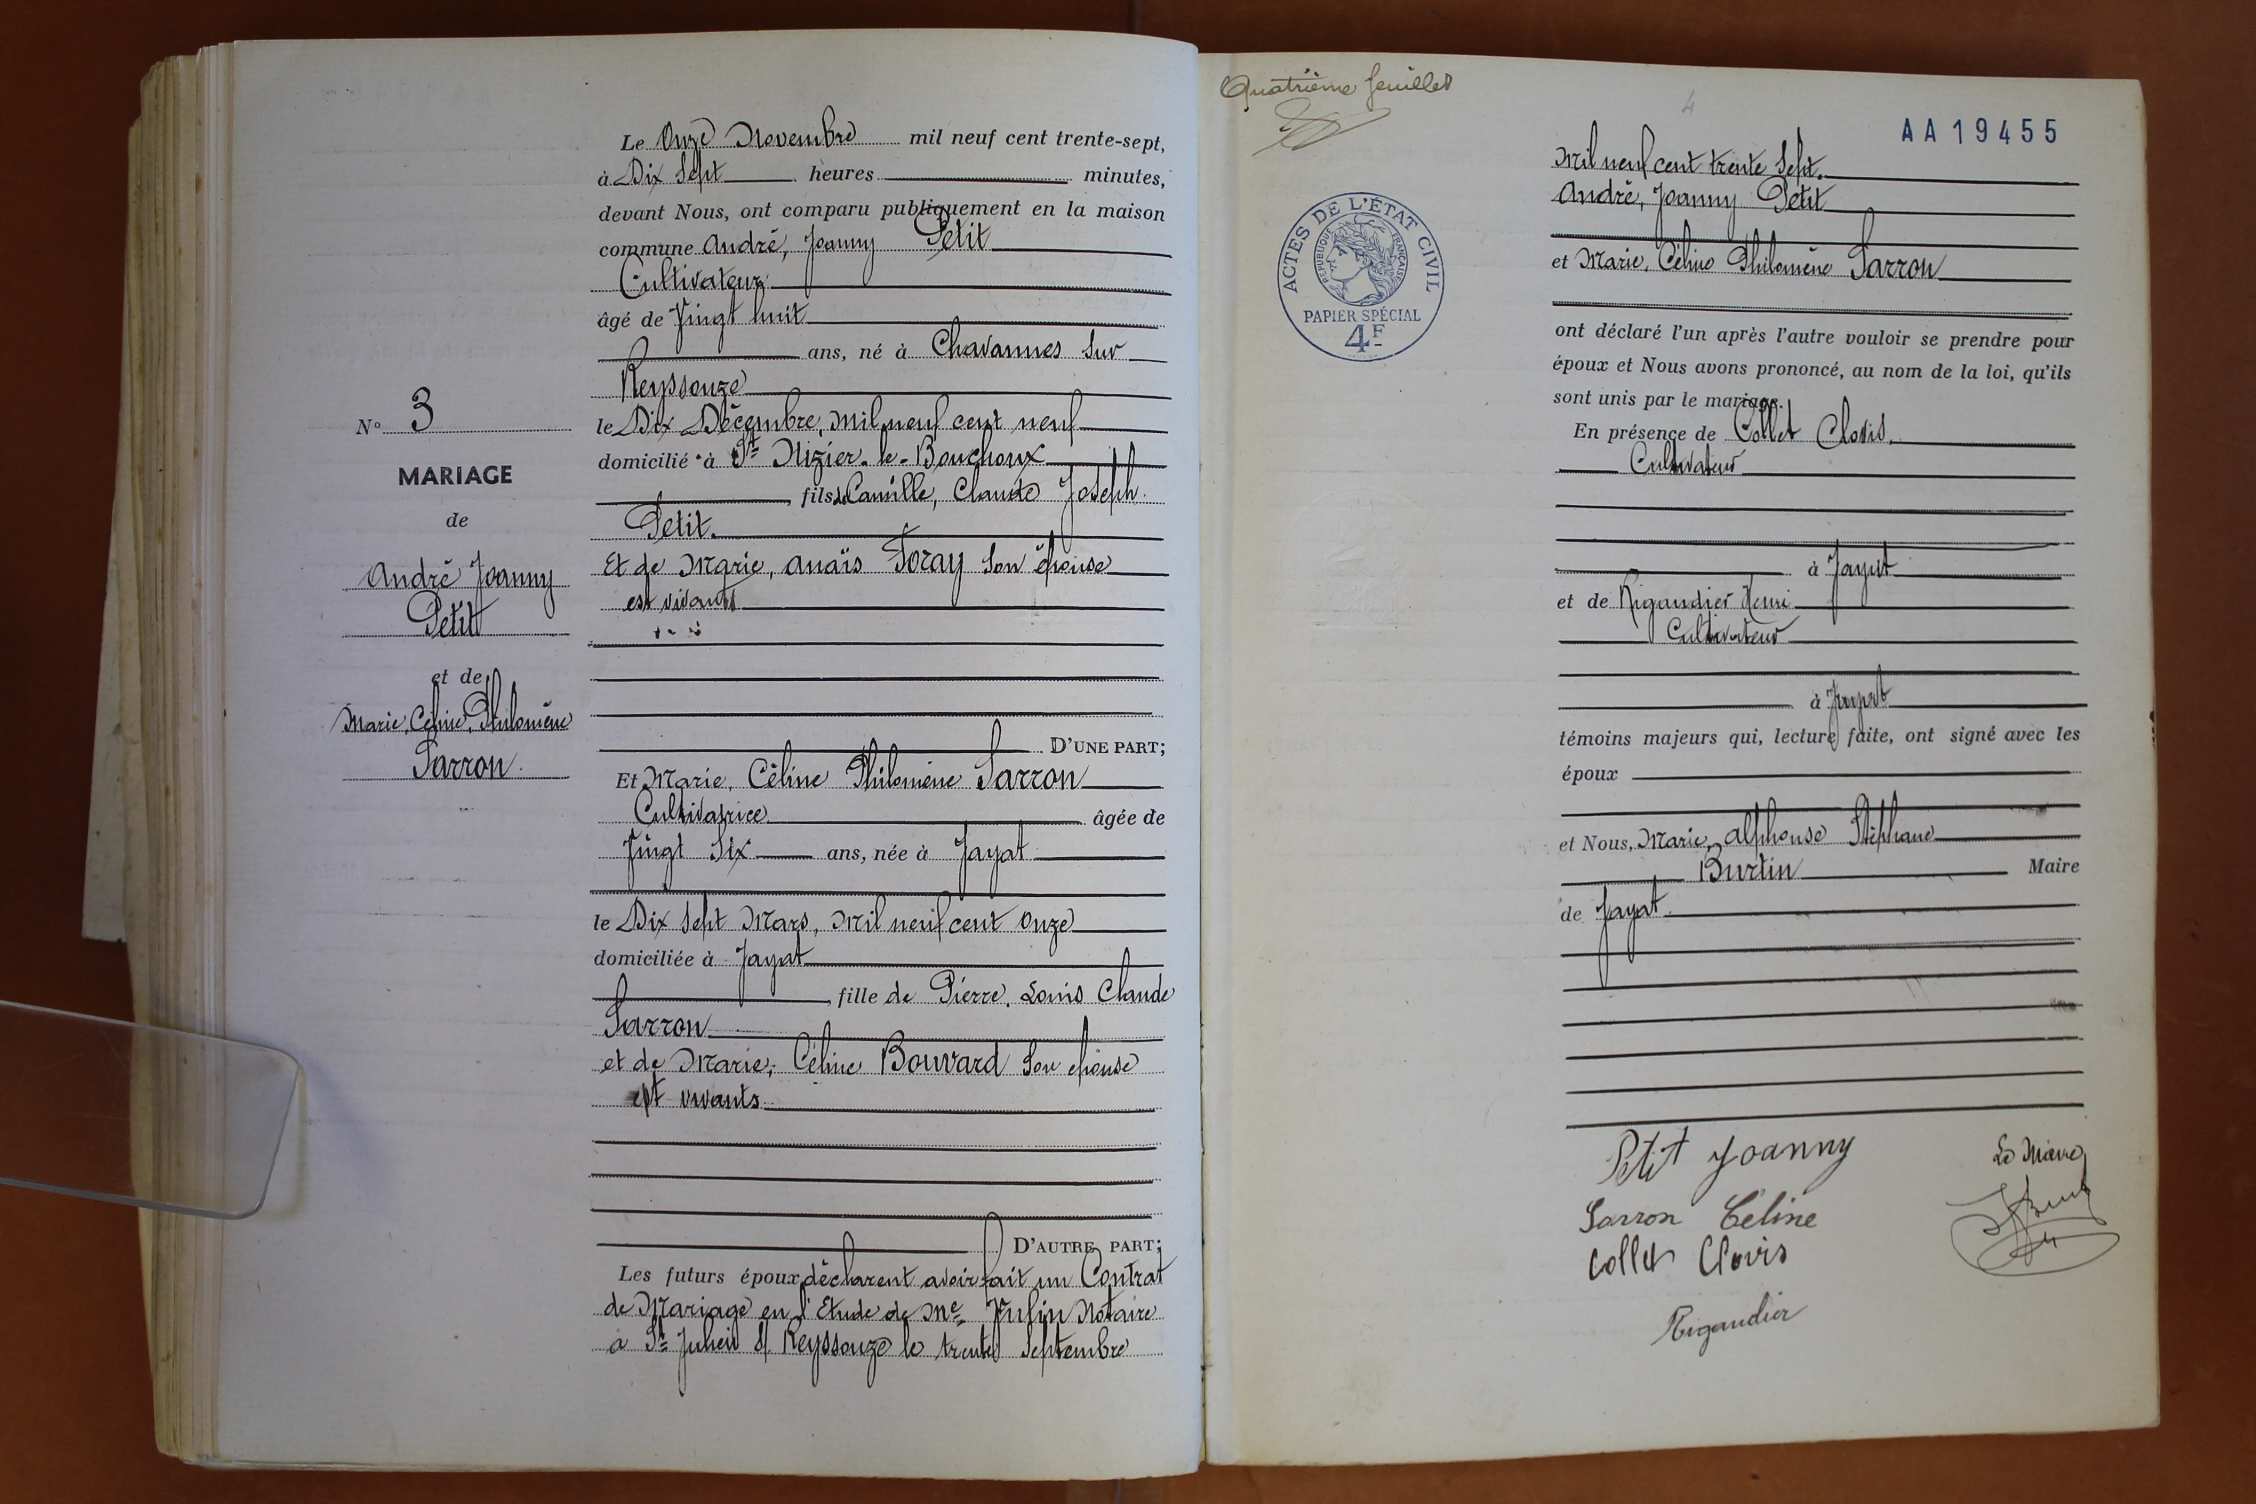 Le Onze Novembre mil neuf cent trente-sept,
à Dix Sept heures minutes,
devant Nous, ont comparu publiquement en la maison
commune André, Joanny Petit
Cultivateur
âgé de Vingt huit
ans, né à Chavannes sur
Reyssouze
le Dix Décembre, mil neuf cent neuf
domicilié à St Nizier-le-Bouchoux
fils de Camille, Claude Joseph
Petit.
Et de Marie, Anaïs Foray son épouse
est vivants
D'UNE PART;
Et Marie, Céline Philomène Sarron
Cultivatrice âgée de
Vingt Six ans, née à Jayat
le Dix Sept Mars, Mil neuf cent onze
domiciliée à Jayat
fille de Pierre, Louis Claude
Sarron
et de Marie, Céline Bouvard son épouse
vivants
D'AUTRE PART;
Les futurs époux déclarent avoir fait un Contrat
de Mariage en l'Etude de Me Notaire
à St Julien s/ Reyssouze le trente Septembre
N° 3
MARIAGE
de
André Joanny
Petit
et de
Marie, Céline, Philomène
Sarron.
Quatrième feuillet
4
AA19455
ACTES DE L'ÉTAT CIVIL
RÉPUBLIQUE FRANÇAISE
PAPIER SPÉCIAL
4F
Mil neuf cent trente Sept.
André, Joanny Petit
et Marie, Céline Philomène Sarron
ont déclaré l'un après l'autre vouloir se prendre pour
époux et Nous avons prononcé, au nom de la loi, qu'ils
sont unis par le mariage.
En présence de Collet Clovis.
Cultivateur
à Jayat
et de Rigaudier Henri
Cultivateur
à Jayat
témoins majeurs qui, lecture faite, ont signé avec les
époux
et Nous, Marie, Alphonse Stéphane
Burtin Maire
de Jayat.
Petit Joanny
Le Maire
Sarron Céline
Collet Clovis
Rigaudier